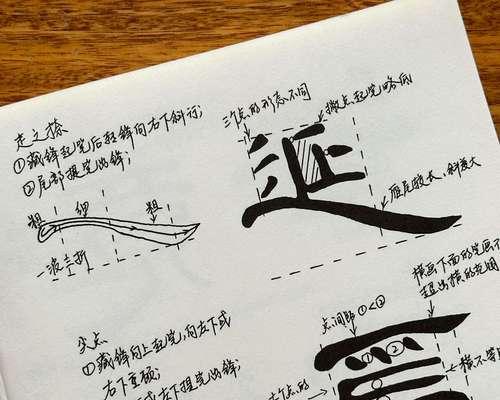 走之捺
①藏锋起笔后转锋向右下斜行;
②尾部提笔出锋;
粗 细 粗
一波三折
三个点的形态不同
撇点起笔略低
近
雁尾较长、斜度大
尖点
①藏锋向上起笔,向左下或
右下重顿;
左下提笔出锋;
点间距①<②
横画下面的笔画不
超出横的范围
①②
横不等
个点的